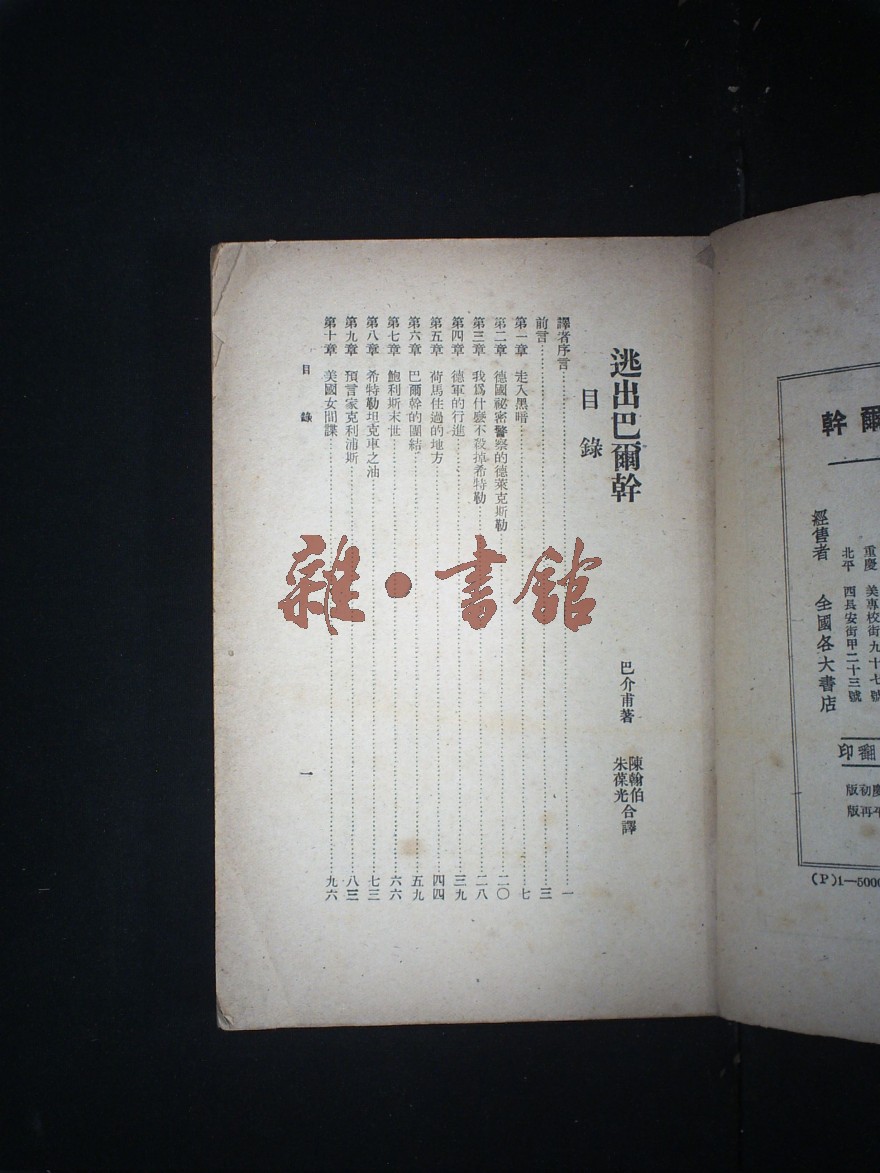 逃出巴爾幹
目錄
巴介甫著
陳翰伯
朱葆光合譯
譯者序言……一
前言……三
第一章 走入黑暗……七
第二章 德國祕密警察的德萊克斯勒……二〇
第三章 我爲什麼不殺掉希特勒……二八
第四章 德軍的行進……三九
第五章 荷馬住過的地方……四四
第六章 巴爾幹的團結……五九
第七章 鮑利斯末世……六六
第八章 希特勒坦克車之油……七三
第九章 預言家克利浦斯……八三
第十章 美國女間諜……九六
目錄
一
雜·書館
爾幹
重慶 美專校街九十七號
北平 西長安街甲二十三號
經售者 全國各大書店
翻印
慶初版
平再版
(P)1—5000